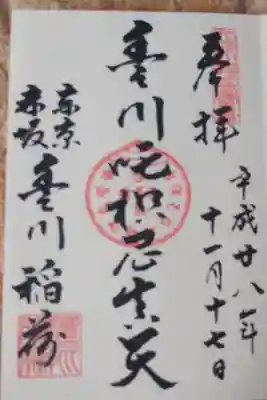 奉拝
平成廿八年
十一月十七日
豊川吒枳尼真天
東京
赤坂
豊川稲荷